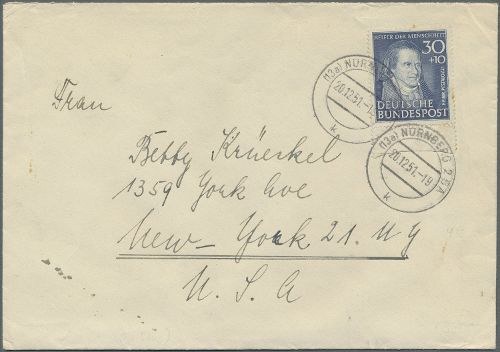 HELFER DER MENSCHHEIT
30
+10
DEUTSCHE
BUNDESPOST
(13a) NÜRNBERG
20.12.51.-19
k
(13a) NÜRNBERG 2
20.12.51.-19
k
Frau
Betty Krückel
1359 York Ave
New-York 21. NY
U. S. A